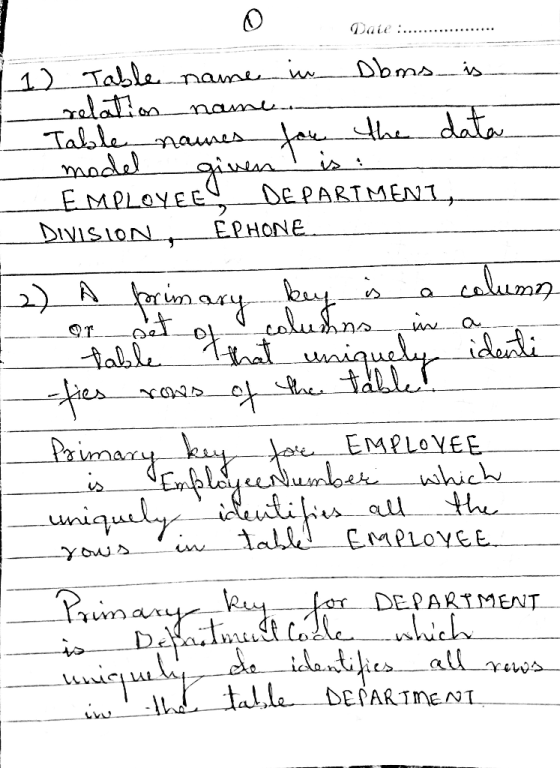 ①
Date :..................
1) Table name in Dbms is
relation name.
Table names for the data
model given is :
EMPLOYEE, DEPARTMENT,
DIVISION, EPHONE.
2) A primary key is a column
or set of columns in a
table that uniquely identi
-fies rows of the table.
Primary key for EMPLOYEE
is EmployeeNumber which
uniquely identifies all the
rows in table EMPLOYEE.
Primary key for DEPARTMENT
is DepartmentCode which
uniquely de identifies all rows
in the table DEPARTMENT.